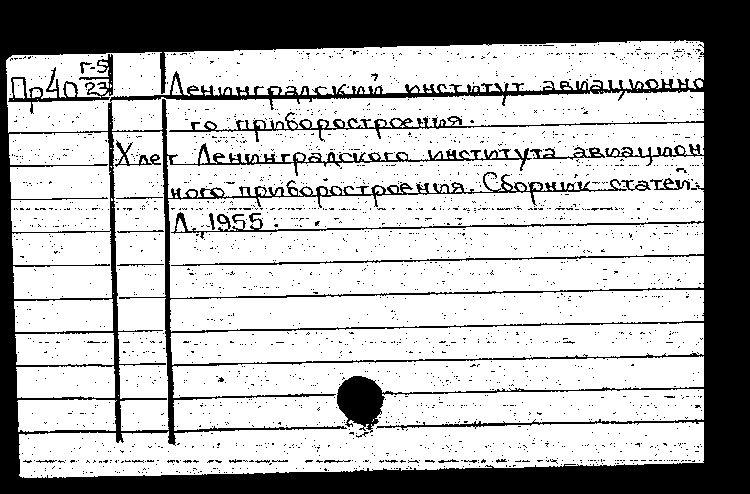 Пр40 г-5/23 Ленинградский институт авиационно
го приборостроения.
X лет Ленинградского института авиацион
ного приборостроения. Сборник статей.
Л., 1955.